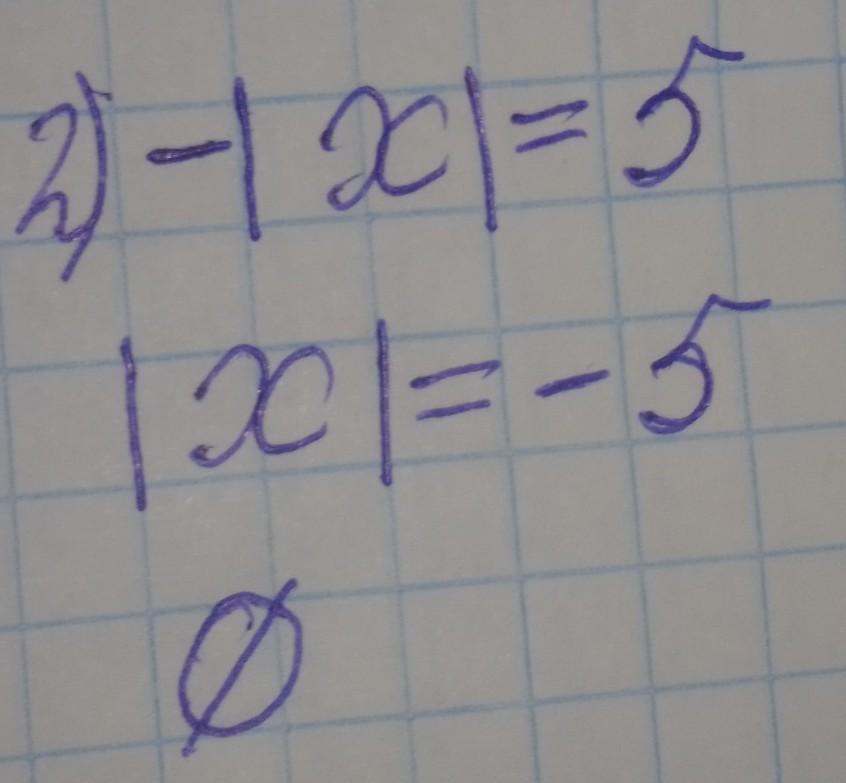 2) -|x| = 5
|x| = -5
∅